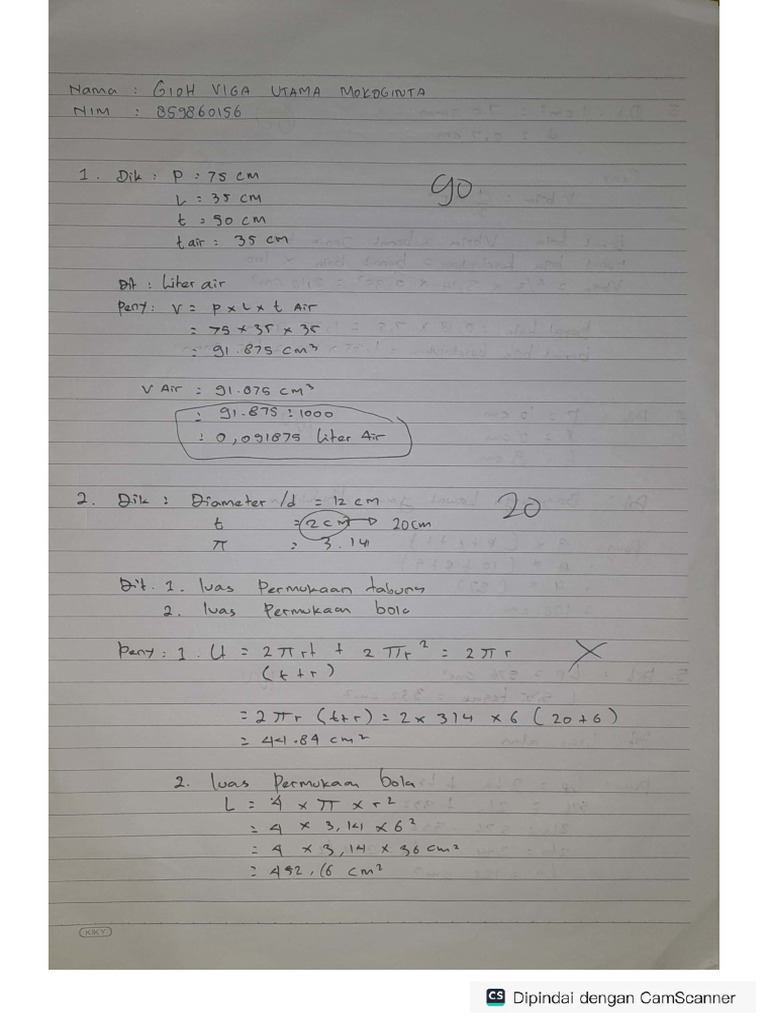 Nama : GIOH VIGA UTAMA MOKOGINTA
NIM : 859860156
1. Dik : P : 75 cm
90
L = 35 cm
t = 50 cm
t air : 35 cm
Dit : Liter air
Peny : V = P x L x t Air
= 75 x 35 x 35
= 91.875 cm³
V Air = 91.875 cm³
: 91.875 : 1000
: 0,091875 Liter Air
2. Dik : Diameter /d = 12 cm
20
t = 2 cm → 20 cm
π = 3.14
Dit. 1. luas Permukaan tabung
2. luas Permukaan bola
Peny : 1. Lt = 2πrt + 2πr² = 2πr
(t+r)
= 2πr (t+r) = 2 x 314 x 6 (20+6)
= 44.84 cm²
2. luas Permukaan bola
L = 4 x π x r²
= 4 x 3,14 x 6²
= 4 x 3,14 x 36 cm²
= 452,16 cm²
KIKY
CS Dipindai dengan CamScanner